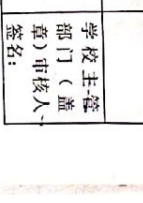 学校主管
部门（盖
章）审核人
签名：